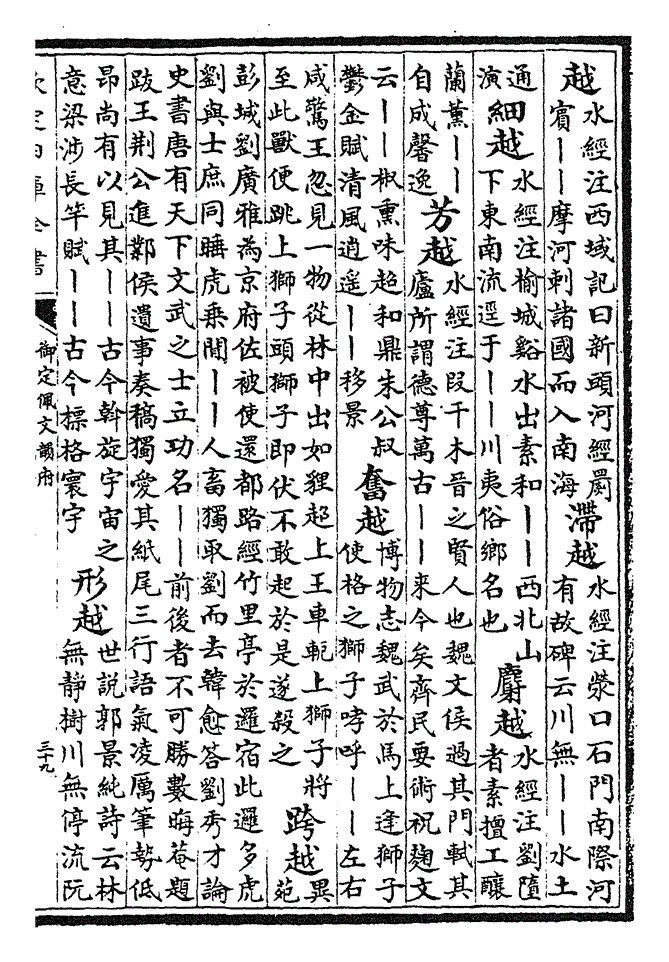 越
水經注西域記曰新頭河經罽
賓——摩河刺諸國而入南海
滯越
水經注滎口石門南際河
有故碑云川無——水土
通
演
細越
水經注榆城谿水出素和——西北山
下東南流逕于——川夷俗鄉名也
麝越
水經注劉墮
者素擅工釀
蘭薰——
自成馨逸
芳越
水經注段干木晉之賢人也魏文侯過其門軾其
廬所謂德尊萬古——来今矣齊民要術祝麴文
云——椒熏味超和鼎朱公叔
鬱金賦清風逍遥——移景
奮越
博物志魏武於馬上逢獅子
使格之獅子哮呼——左右
咸驚王忽見一物從林中出如狸超上王車軛上獅子將
至此獸便跳上獅子頭獅子即伏不敢起於是遂殺之
跨越
異
苑
彭城劉廣雅為京府佐被使還都路經竹里亭於邏宿此邏多虎
劉與士庶同睡虎乘間——人畜獨取劉而去韓愈答劉秀才論
史書唐有天下文武之士立功名——前後者不可勝數晦菴題
跋王荆公進鄴侯遺事奏稿獨愛其紙尾三行語氣凌厲筆勢低
昂尚有以見其——古今斡旋宇宙之
意梁涉長竿賦——古今標格寰宇
形越
世說郭景純詩云林
無靜樹川無停流阮
欽定四庫全書
御定佩文韻府
三十九